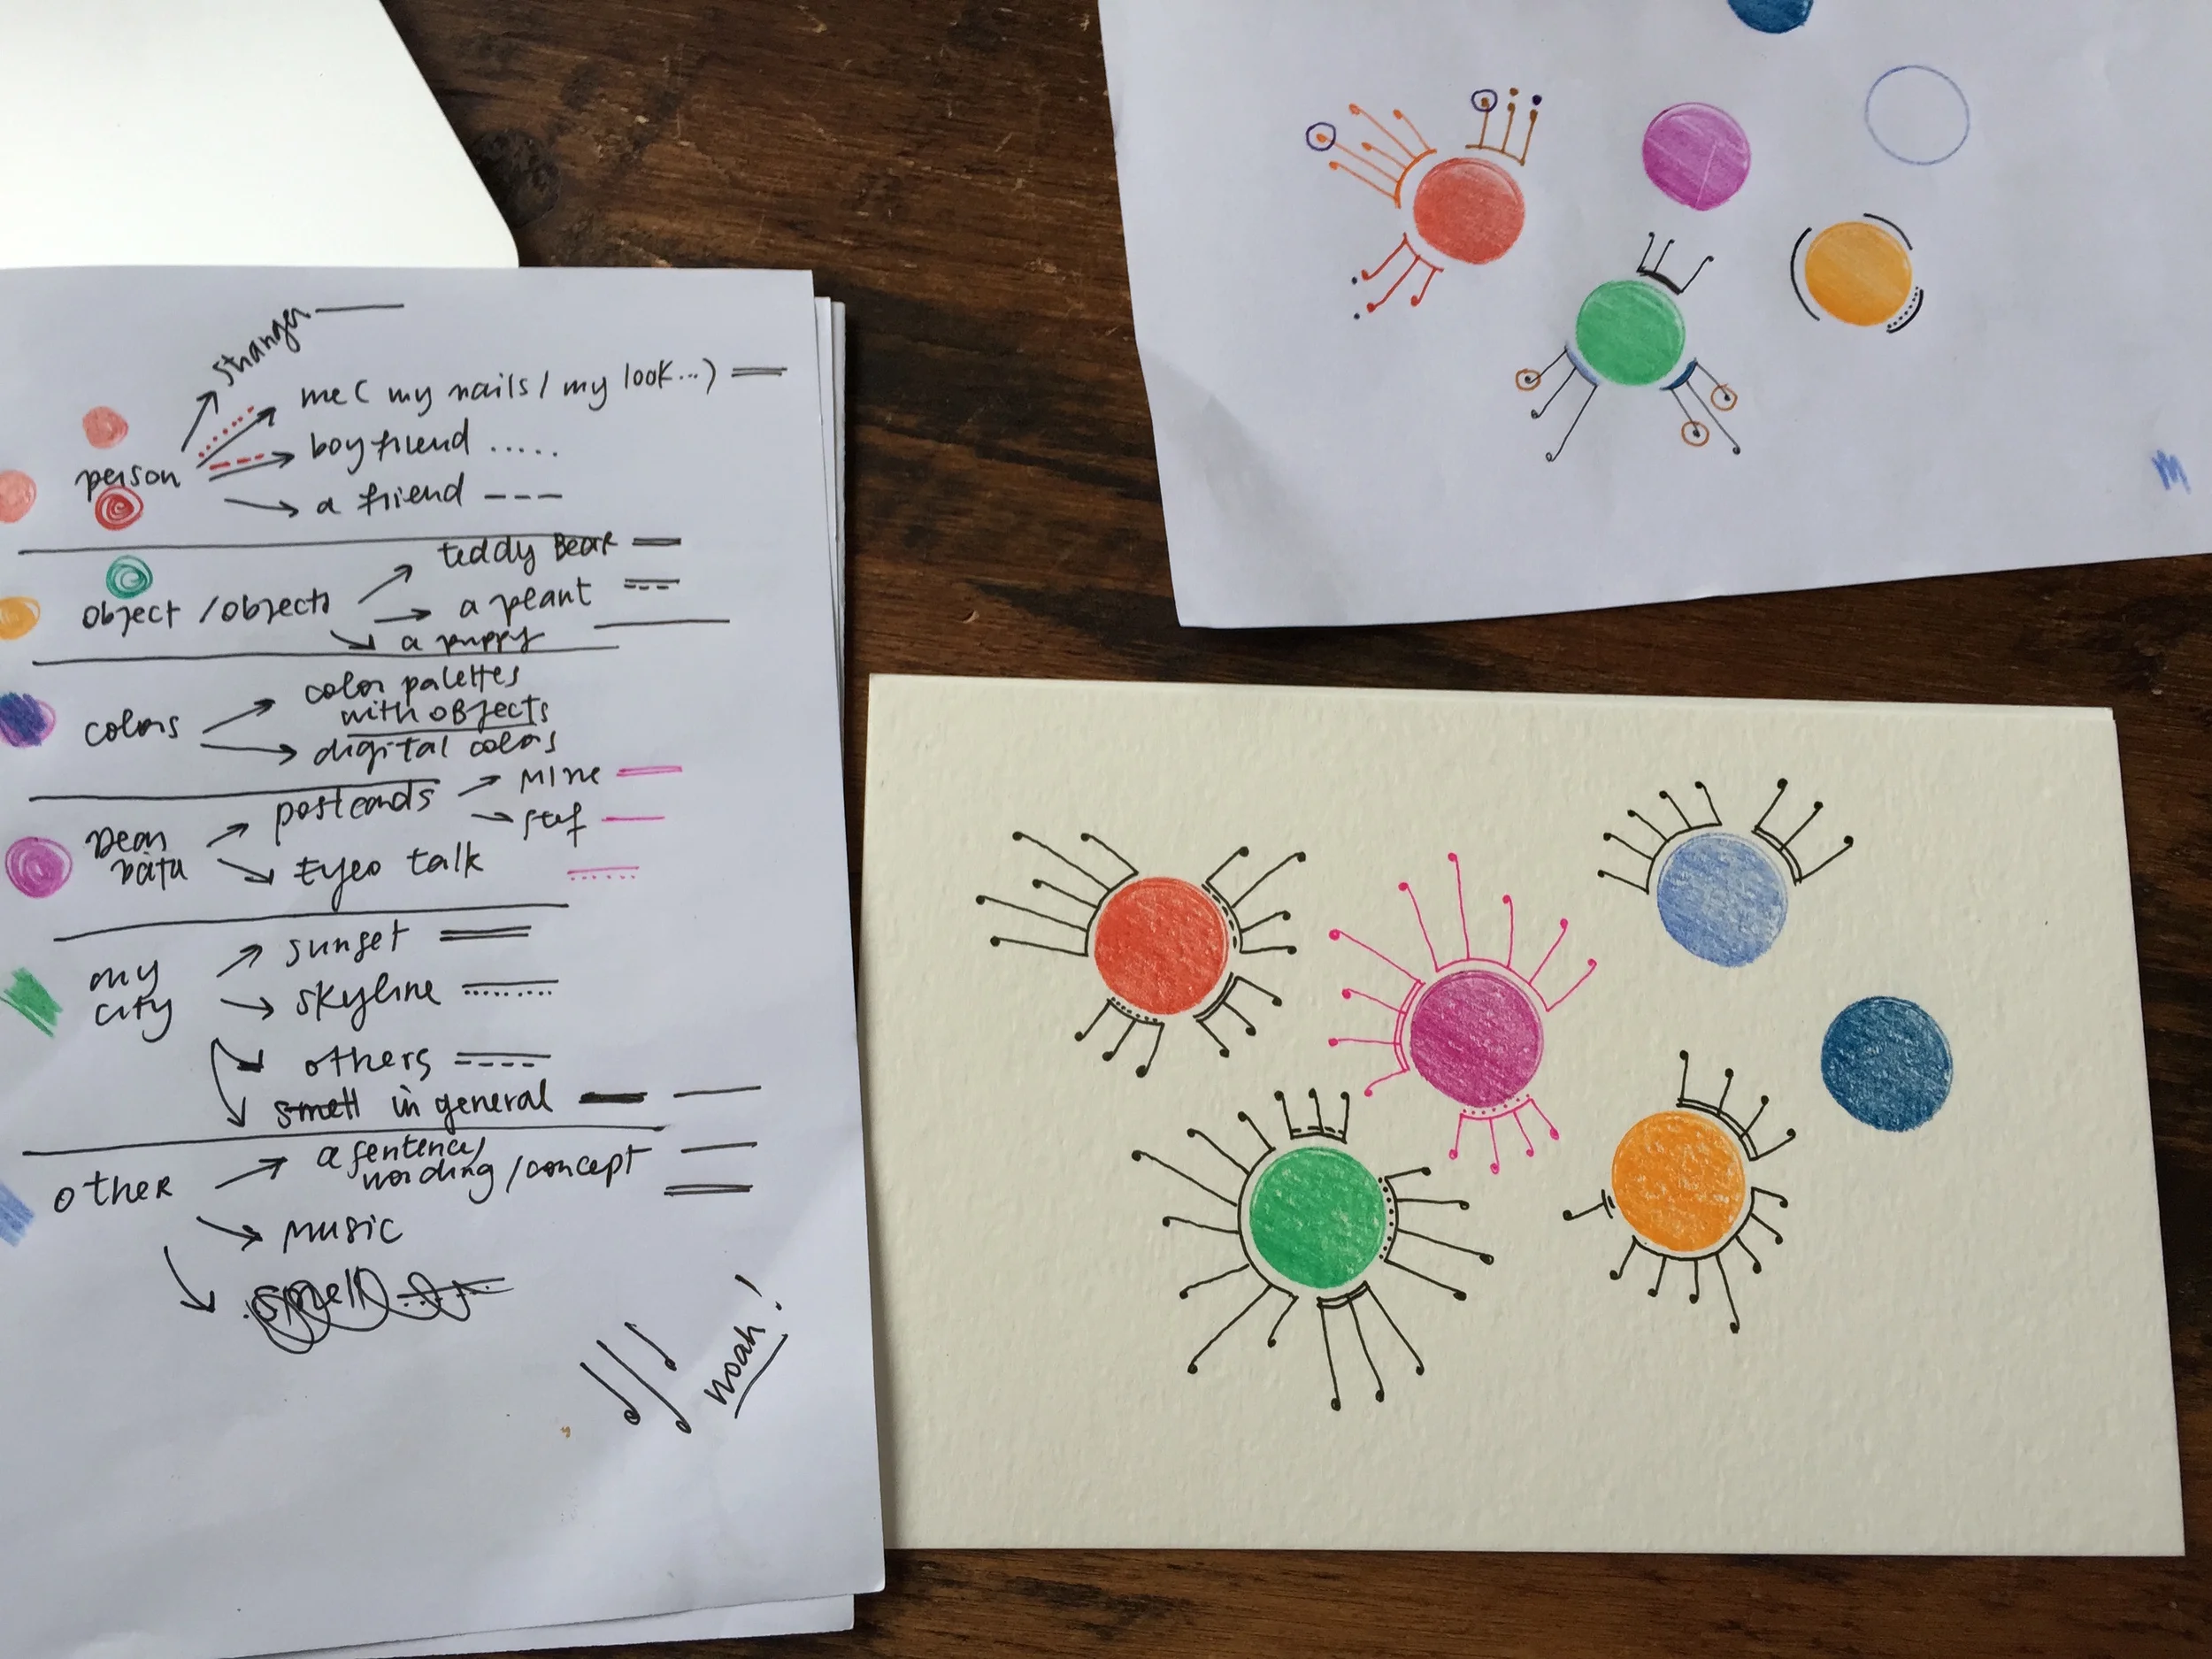 stranger
me ( my nails / my look...)
boyfriend
person
a friend
teddy Bear
object / objects
a peant
a puppy
color palettes
with objects
colors
digital colors
mine
postcards
stef
Dear
Data
Eyeo talk
sunset
my
city
skyline
others
smell in general
a sentence/
wording / concept
other
music
smell
noah!
M